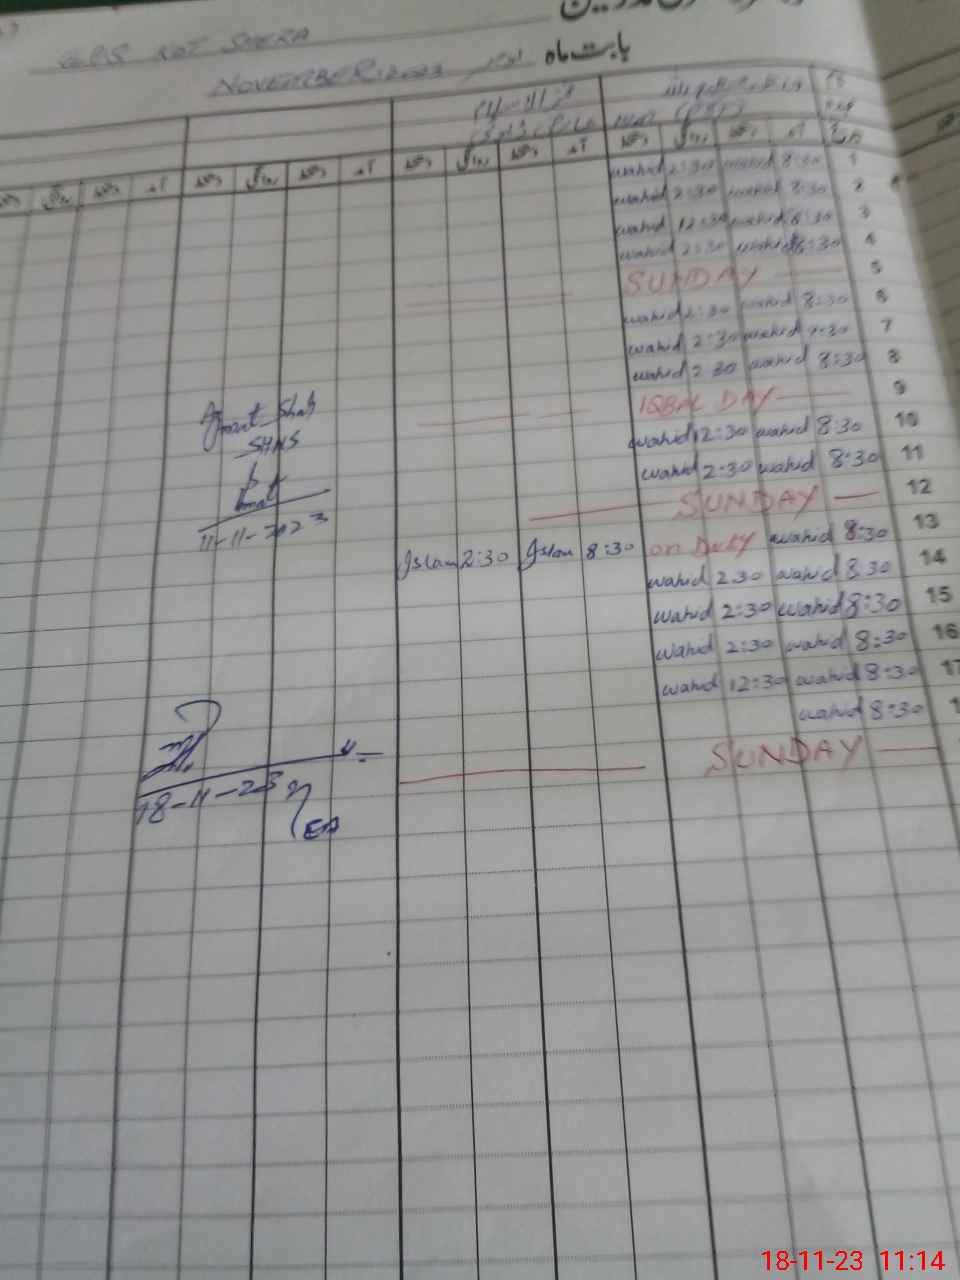 NOVEMBER. 2023 بابت ماہ
دستخط روانگی دستخط آمد دستخط روانگی دستخط آمد دستخط روانگی دستخط آمد
wahid 2:30 wahid 8:30 1
wahid 2:30 wahid 8:30 2
wahid 12:30 wahid 8:30 3
wahid 2:30 wahid 8:30 4
SUNDAY 5
wahid 2:30 wahid 8:30 6
wahid 2:30 wahid 8:30 7
wahid 2 30 wahid 8:30 8
IQBAL DAY 9
wahid 12:30 wahid 8:30 10
wahid 2:30 wahid 8:30 11
SUNDAY 12
Islam 2:30 Islam 8:30 on Duty wahid 8:30 13
wahid 2 30 wahid 8:30 14
wahid 2:30 wahid 8:30 15
wahid 2:30 wahid 8:30 16
wahid 12:30 wahid 8:30 17
wahid 8:30
SUNDAY
Shah
11-11-2023
18-11-23
18-11-23 11:14